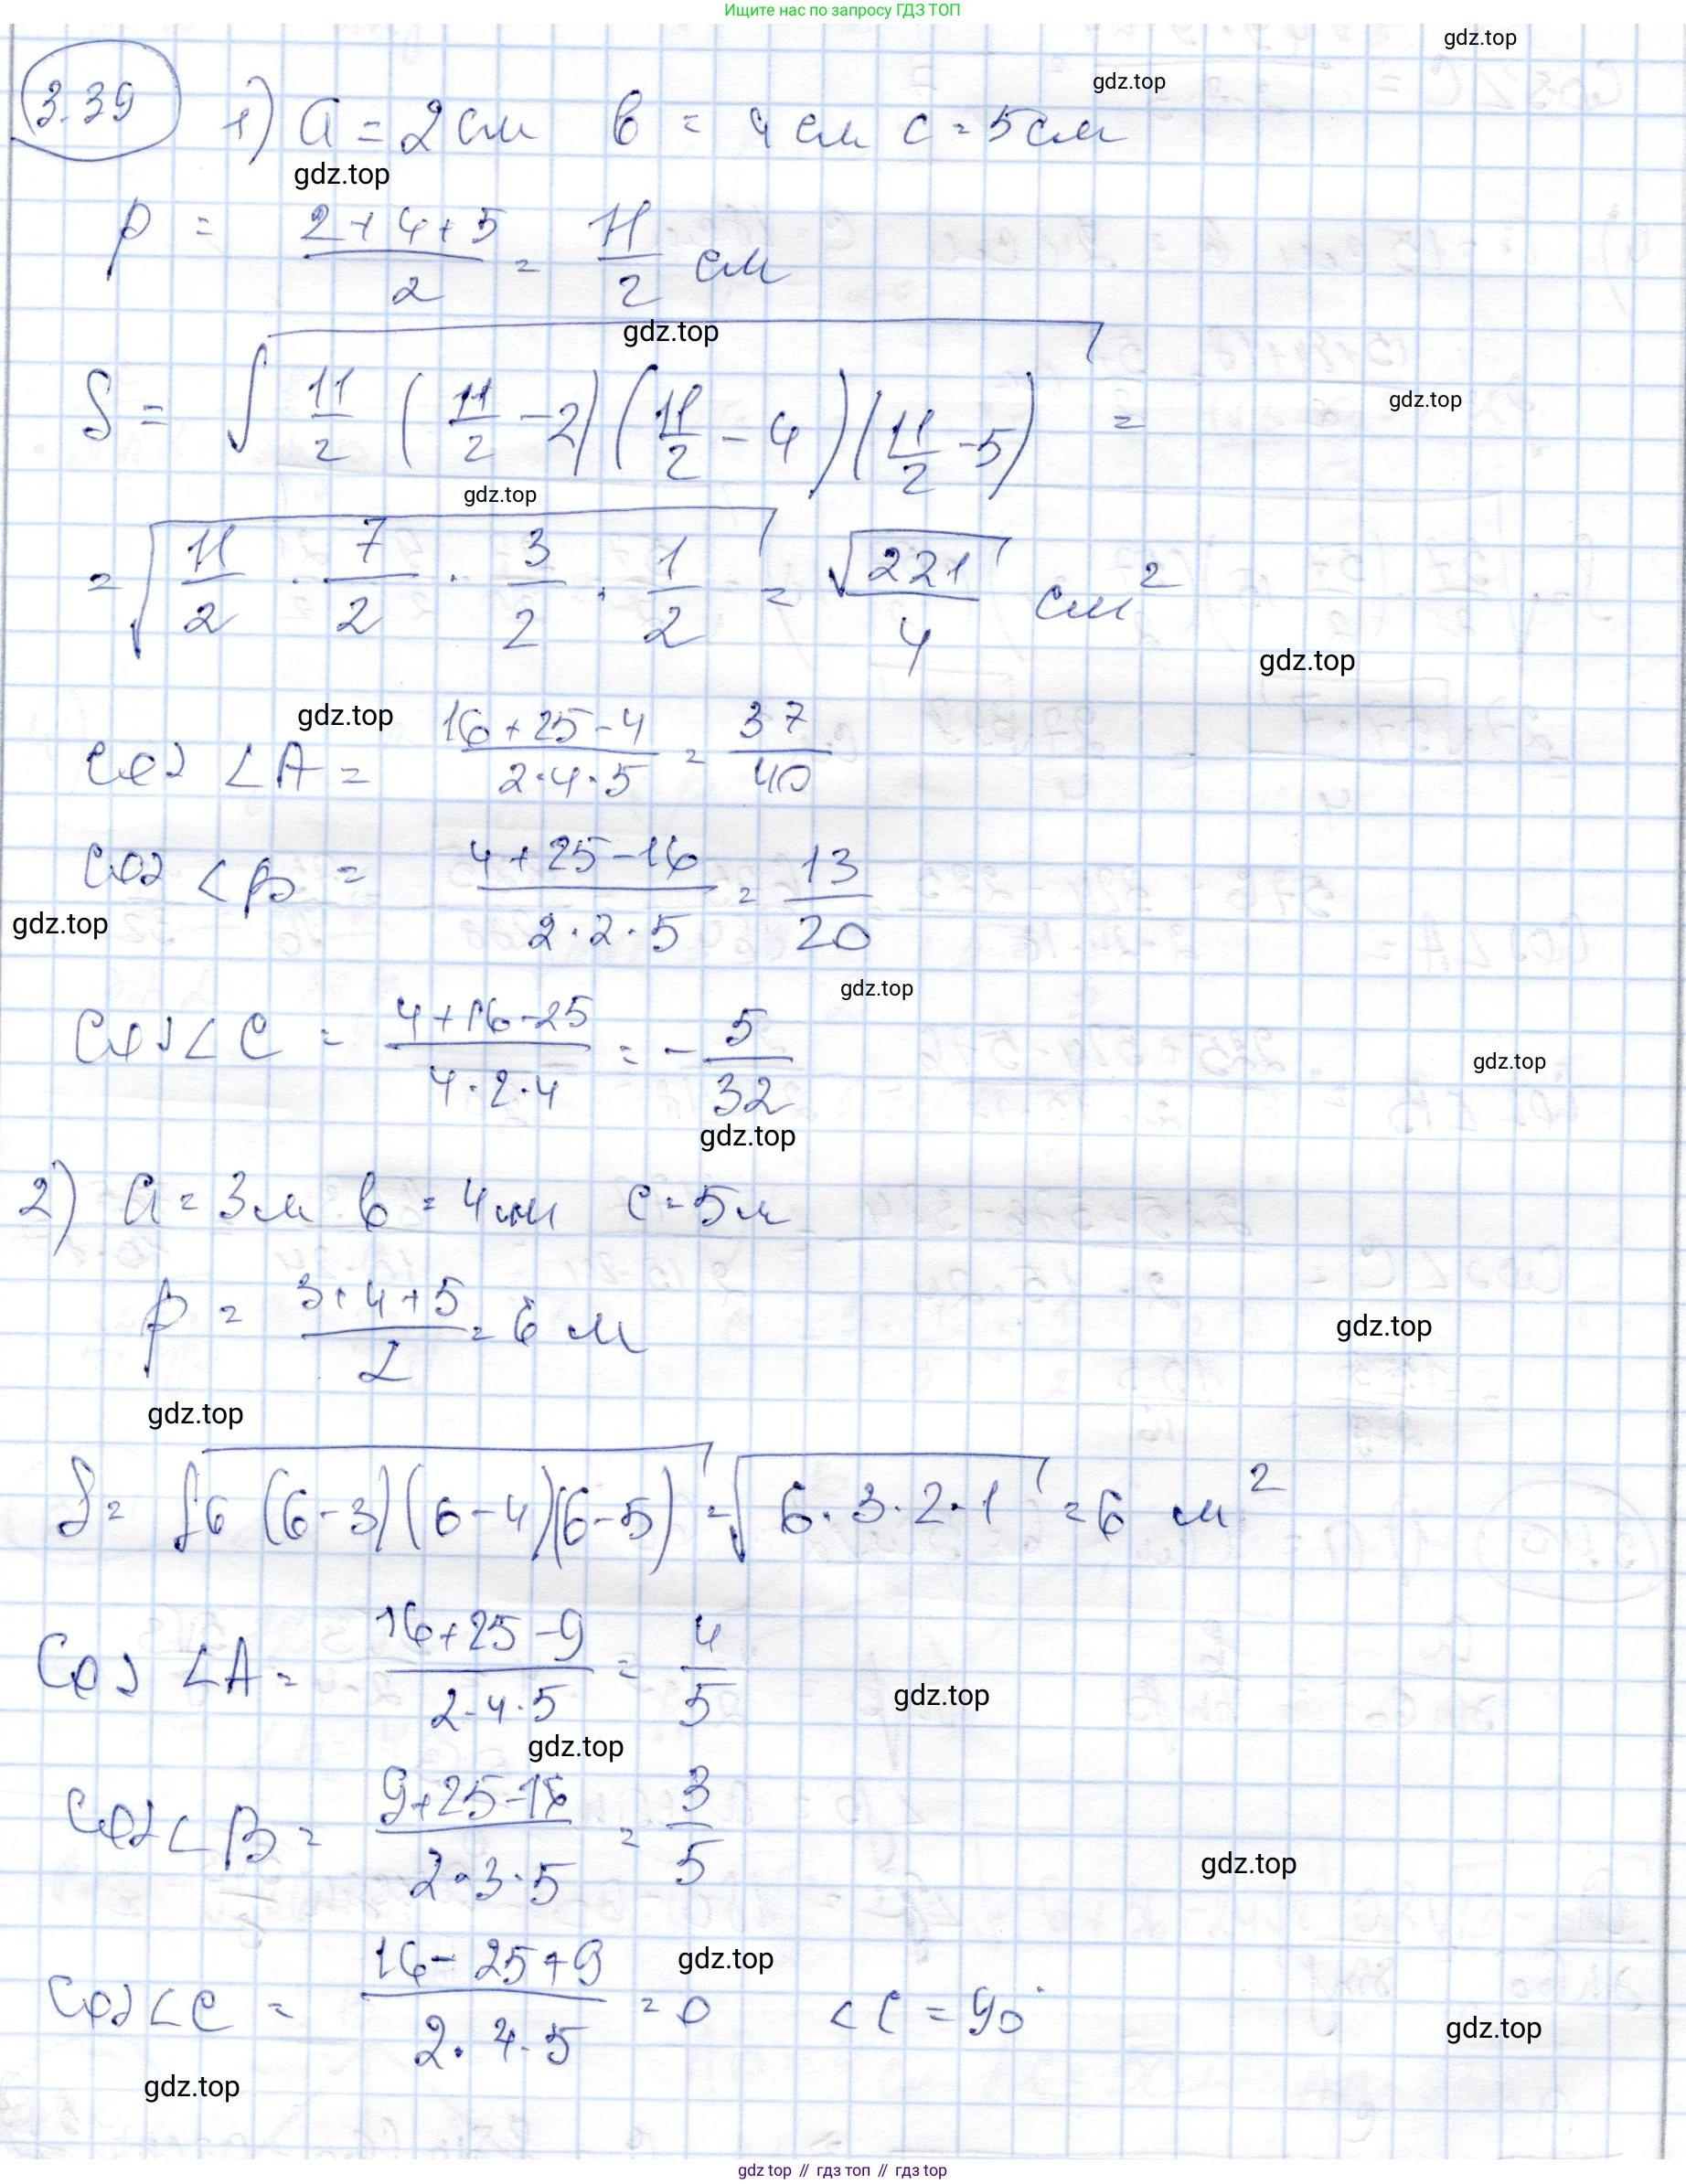 Ищите нас по запросу ГДЗ ТОП
gdz.top
gdz.top
3.39 1) a = 2 см b = 4 см c = 5 см
gdz.top
p = (2+4+5)/2 = 11/2 см
gdz.top
S = √(11/2 (11/2 - 2)(11/2 - 4)(11/2 - 5)) =
gdz.top
gdz.top
= √(11/2 · 7/2 · 3/2 · 1/2) = √221/4 см²
gdz.top
gdz.top
cos ∠A = (16+25-4)/(2·4·5) = 37/40
cos ∠B = (4+25-16)/(2·2·5) = 13/20
gdz.top
gdz.top
cos ∠C = (4+16-25)/(4·2·4) = -5/32
gdz.top
gdz.top
2) a = 3 м b = 4 м c = 5 м
p = (3+4+5)/2 = 6 м
gdz.top
gdz.top
S = √(6(6-3)(6-4)(6-5)) = √(6·3·2·1) = 6 м²
cos ∠A = (16+25-9)/(2·4·5) = 4/5
gdz.top
gdz.top
cos ∠B = (9+25-16)/(2·3·5) = 3/5
gdz.top
cos ∠C = (16-25+9)/(2·4·5) = 0 ∠C = 90°
gdz.top
gdz.top
gdz.top
gdz top // гдз топ // гдз top